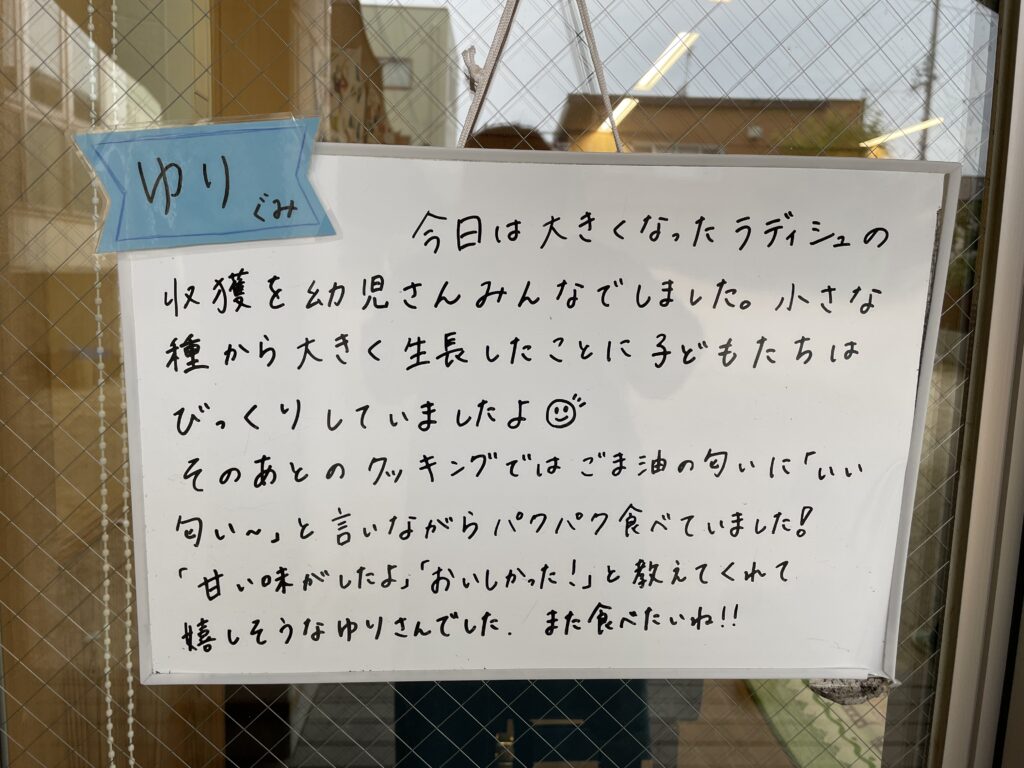 ゆり
ぐみ
今日は大きくなったラディシュの
収獲を幼児さんみんなでしました。小さな
種から大きく生長したことに子どもたちは
びっくりしていましたよ
そのあとのクッキングではごま油の匂いに「いい
匂い〜」と言いながらパクパク食べていました!
「甘い味がしたよ」「おいしかった!」と教えてくれて
嬉しそうなゆりさんでした. また食べたいね!!